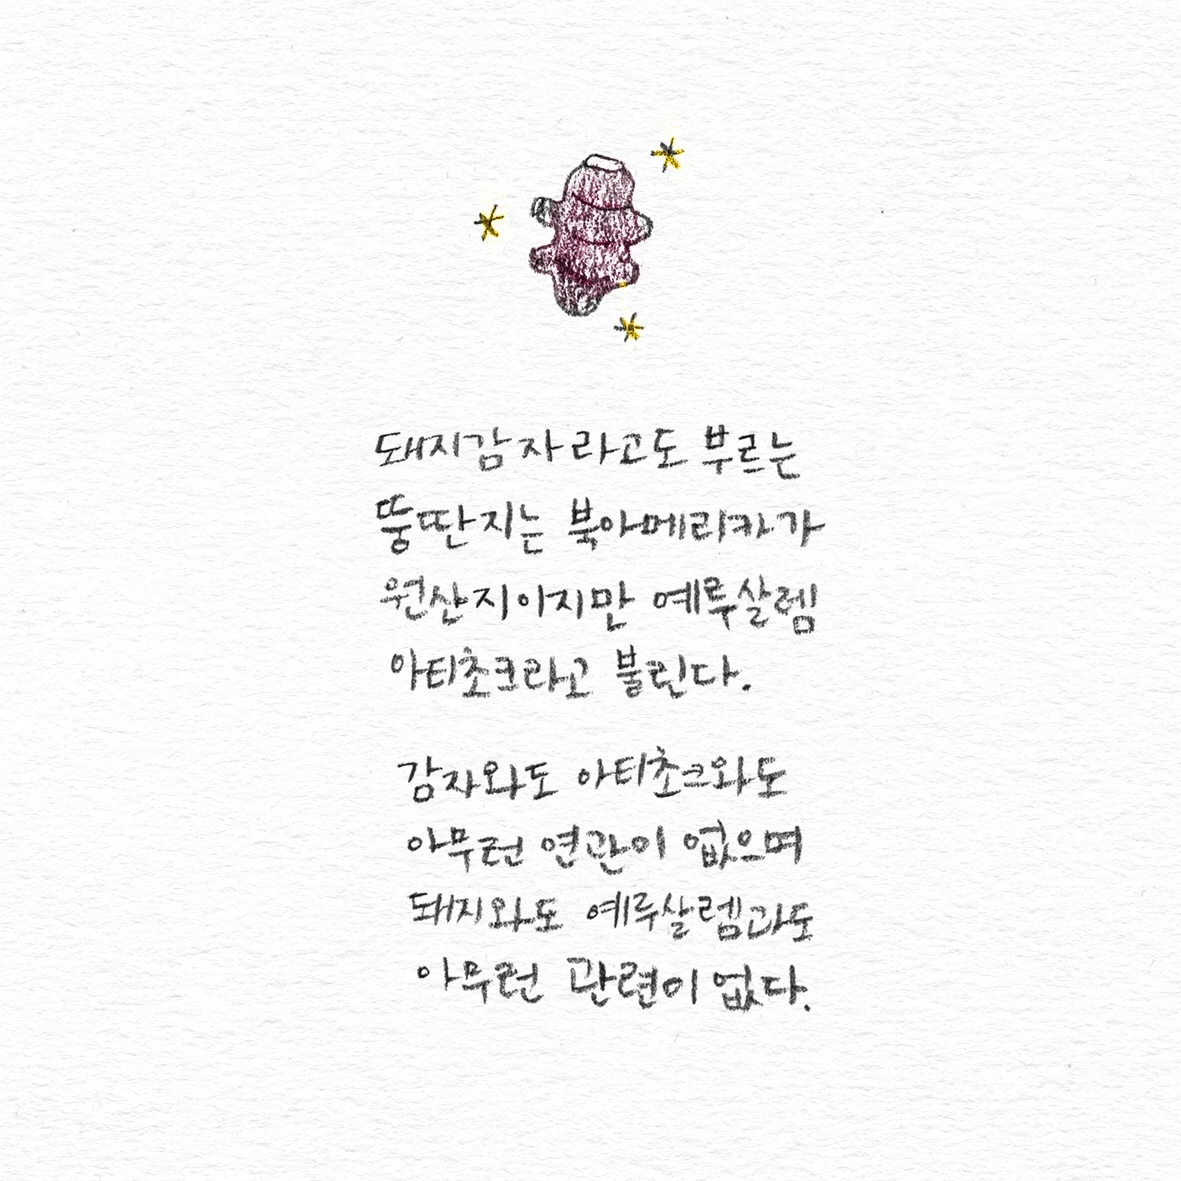 돼지감자라고도 부르는
뚱딴지는 북아메리카가
원산지이지만 예루살렘
아티초크라고 불린다.
감자와도 아티초크와도
아무런 연관이 없으며
돼지와도 예루살렘과도
아무런 관련이 없다.